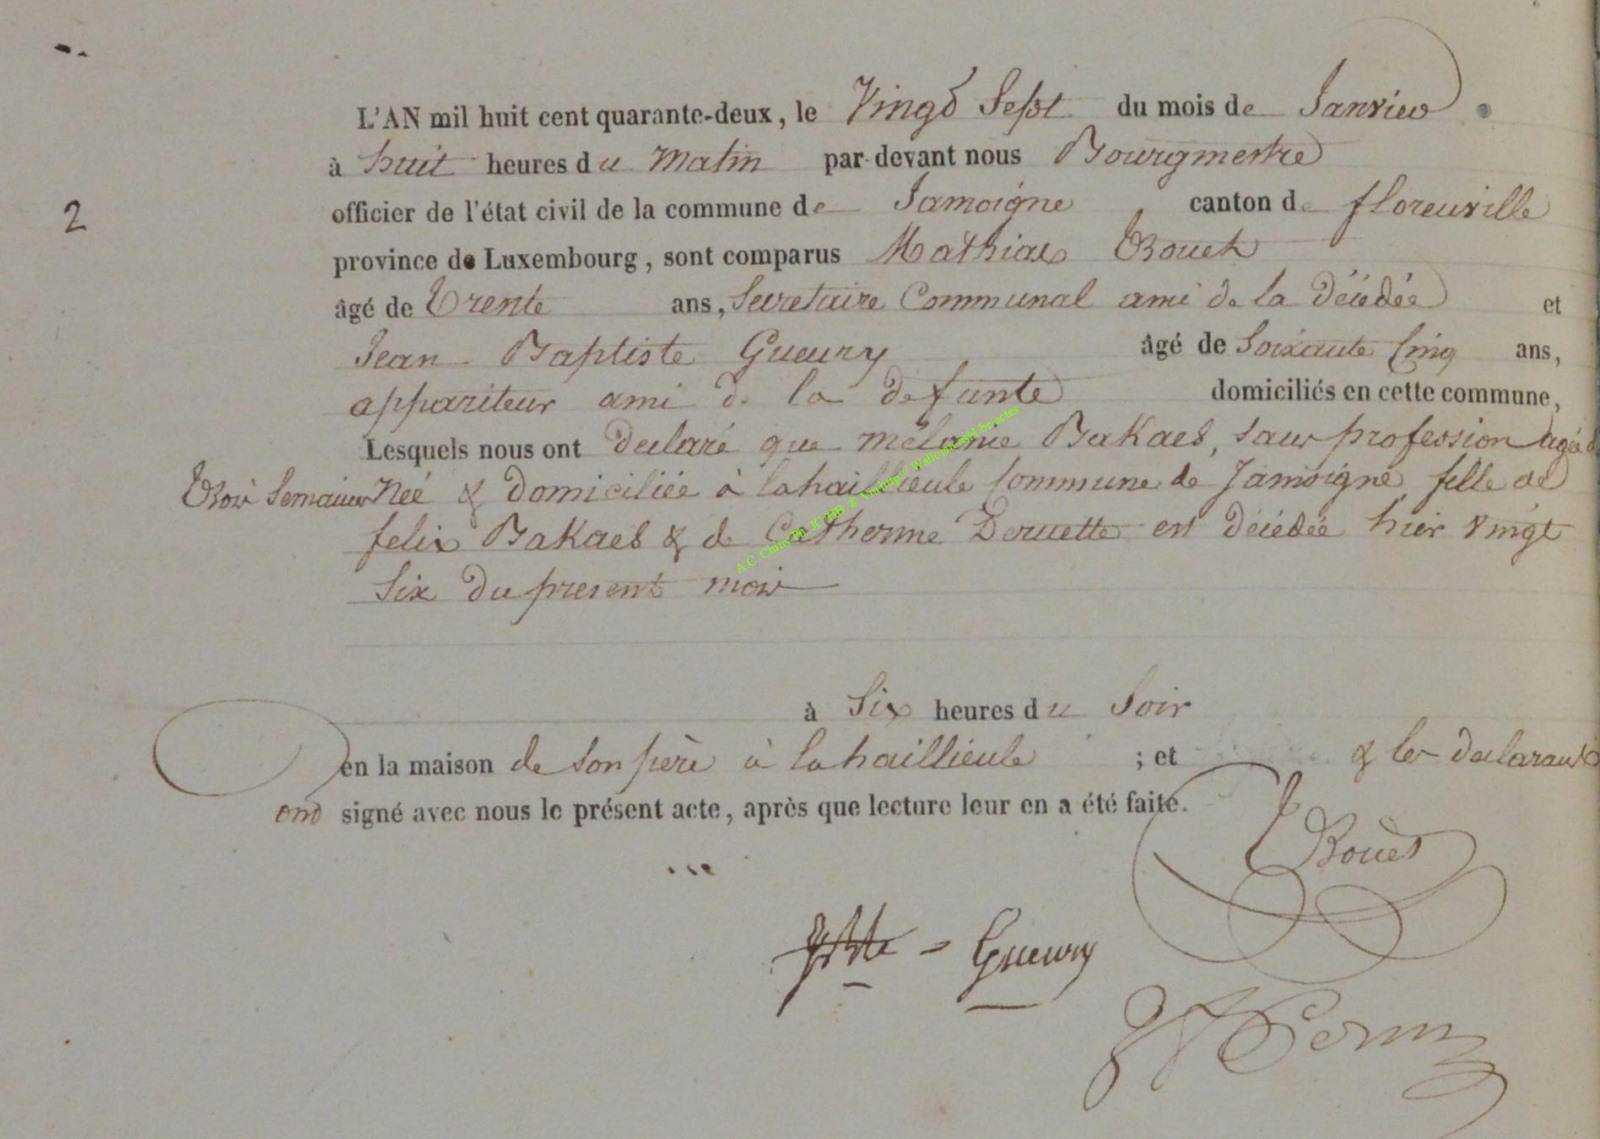 L'AN mil huit cent quarante-deux, le Vingt Sept du mois de Janvier
à huit heures du matin par devant nous Bourgmestre
2 officier de l'état civil de la commune de Jamoigne canton de florenville
province de Luxembourg, sont comparus Mathias
âgé de trente ans, Secretaire Communal ami de la décédée et
Jean Baptiste Gueury âgé de Soixante Cinq ans,
appariteur ami de la defunte domiciliés en cette commune,
Lesquels nous ont declaré que mélanie Bakaes, sans profession agée de
trois Semaines Neé & domiciliée à lahaillieule Commune de Jamoigne, fille de
felix Bakaes & de Catherine est décédée hier vingt
Six du present mois
à Six heures du Soir
en la maison de son père à lahaillieule ; et & les declarants
ont signé avec nous le présent acte, après que lecture leur en a été faite.
Gueury